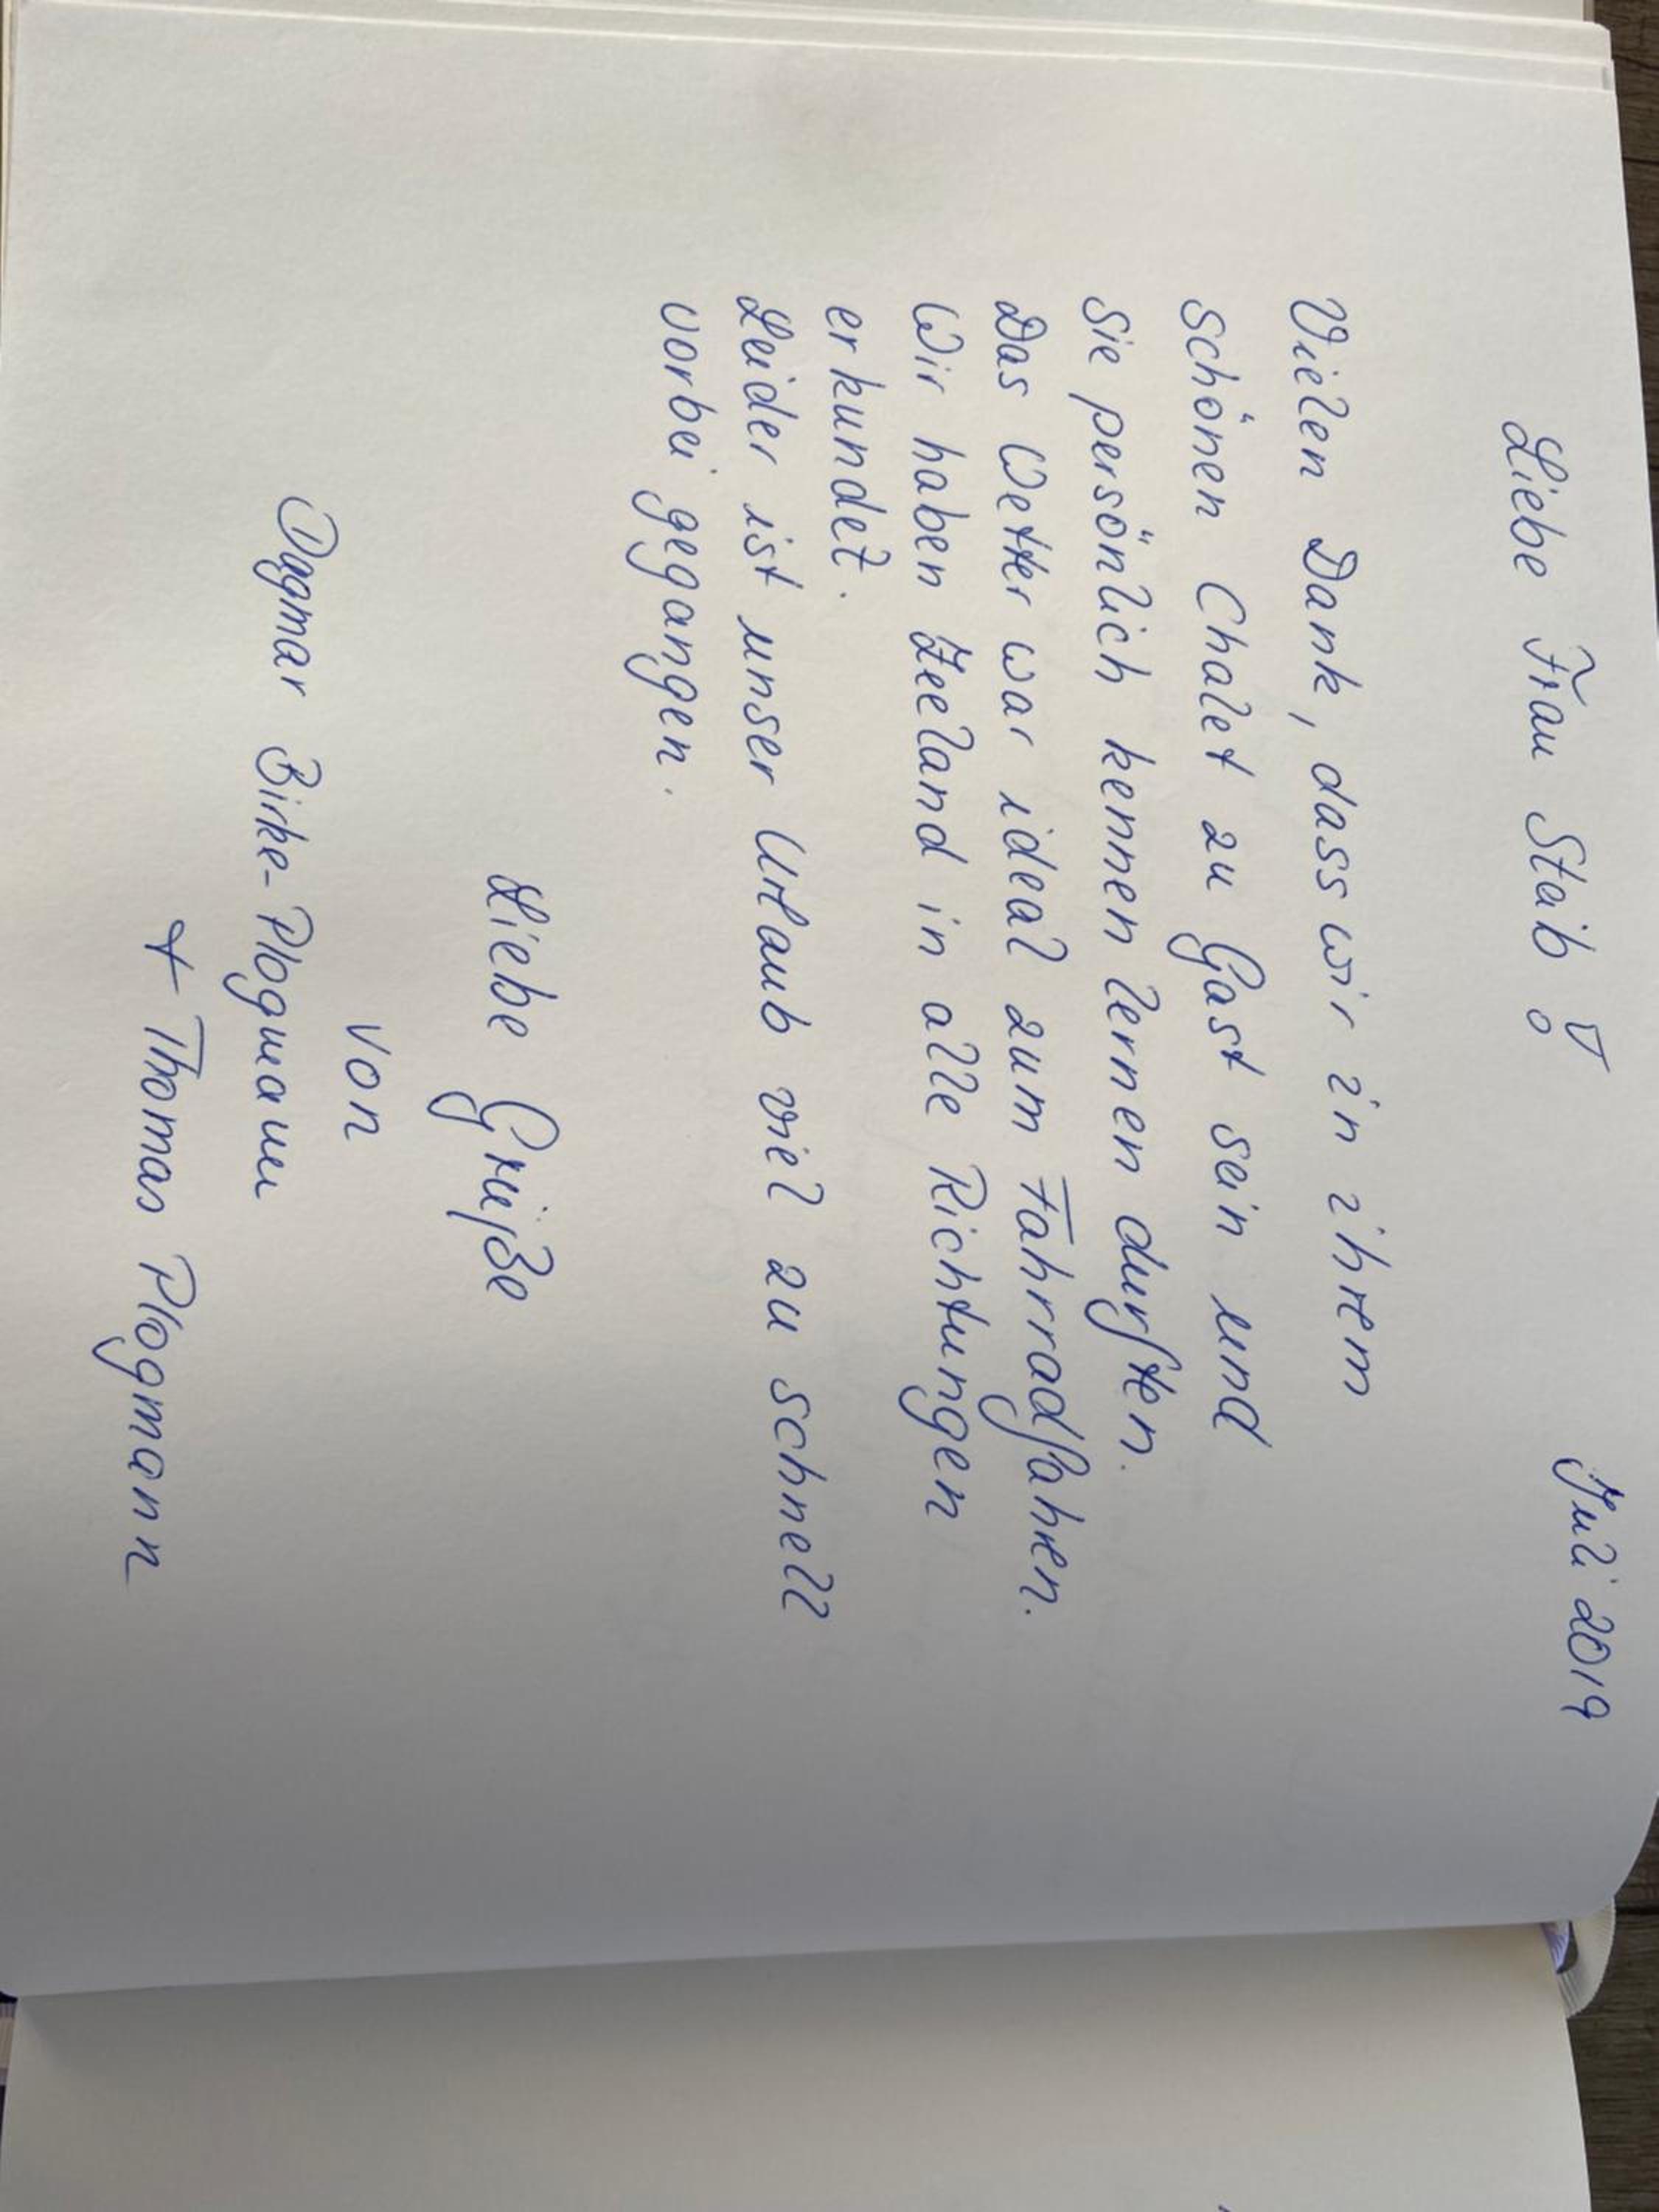 Juli 2019
Liebe Frau Staib!
Vielen Dank, dass wir in ihrem
schönen Chalet zu Gast sein und
Sie persönlich kennen lernen durften.
Das Wetter war ideal zum Fahrradfahren.
Wir haben Zeeland in alle Richtungen
erkundet.
Leider ist unser Urlaub viel zu schnell
vorbei gegangen.
Liebe Grüße
von
Dagmar Birke-Plogmann
+ Thomas Plogmann